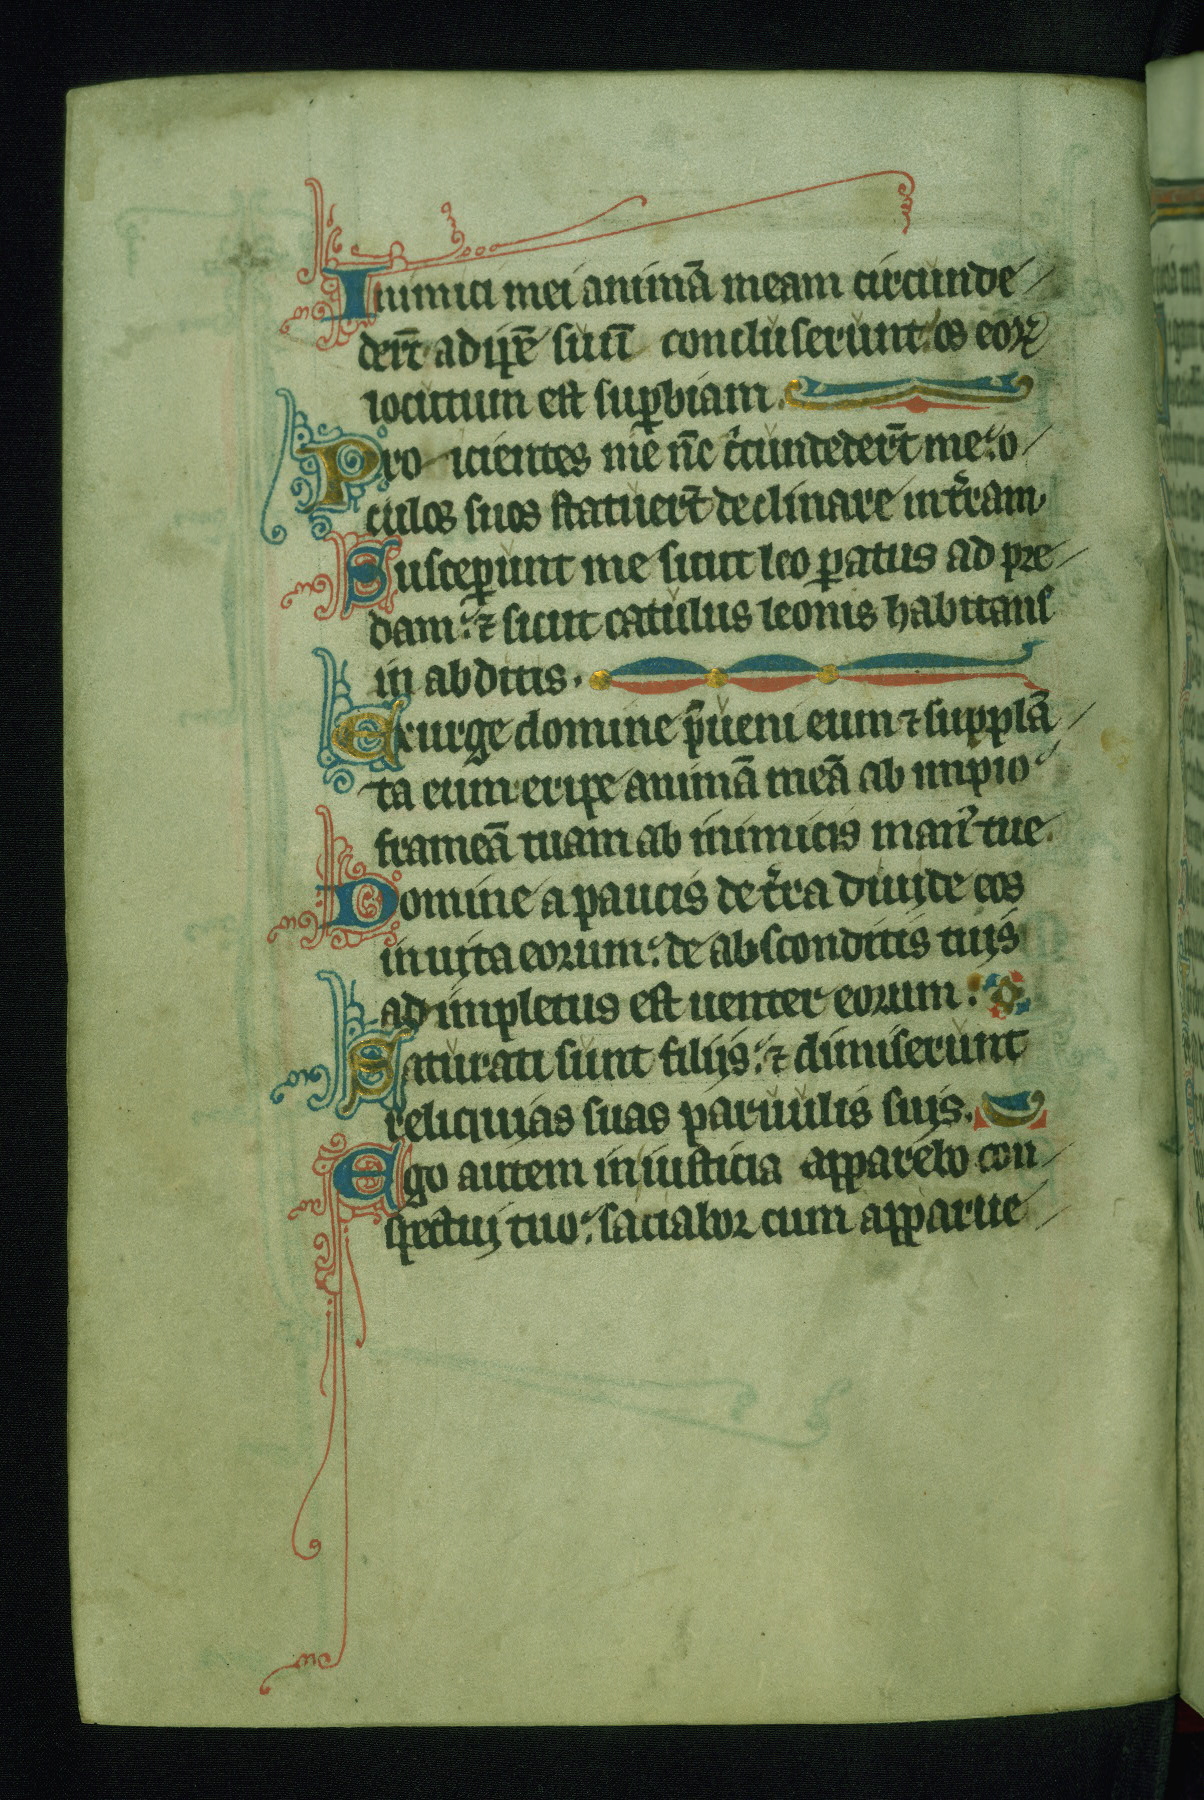 Inimici mei animā meam circunde
der̄t adipē suū concluserunt os eoꝝ
locutum est suꝑbiam.
Pro icientes me nc̄ c̓cundeder̄t me: o
culos suos statuer̄t declinare in t̓ram
Susceꝑunt me sicut leo ꝑatus ad pre
dam: ⁊ sicut catulus leonis habitans
in abditis.
Exurge domine p̄ueni eum ⁊ supplā
ta eum eripe animā meā ab impio
frameā tuam ab inimicis man᷒ tue.
Domine a paucis de t̓ra diuide eos
in uita eorum: de absconditis tuis
adimpletus est uenter eorum:
Saturati sunt filijs: ⁊ dimiserunt
reliquias suas paruulis suis.
Ego autem in iusticia apparebo con
spectui tuo: saciabor cum apparue